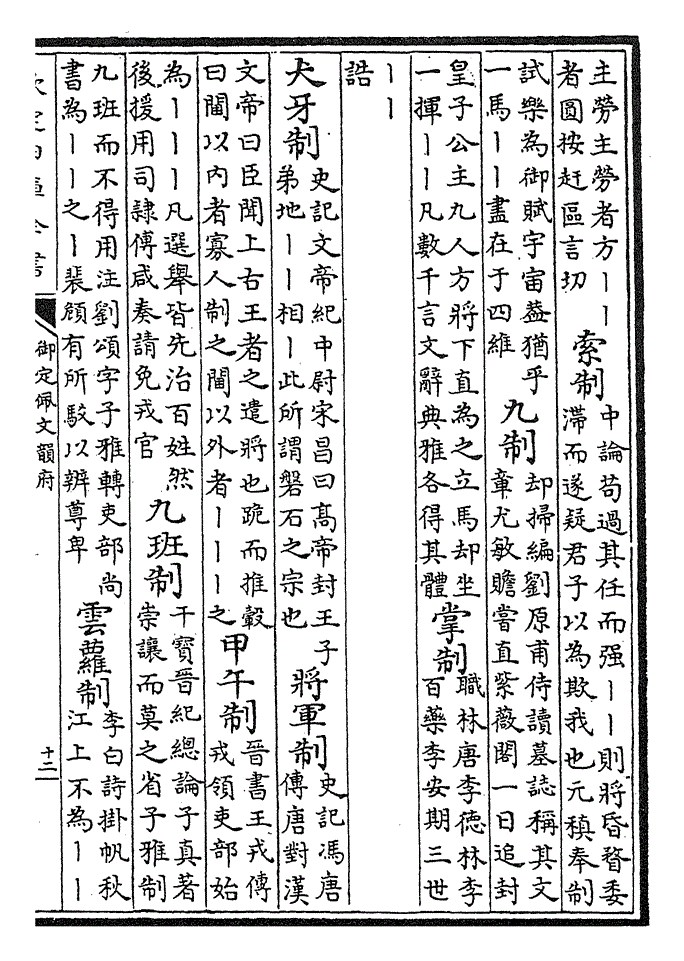 主勞主勞者方丨丨
者圓按赶區言切
索制
中論苟過其任而强丨丨則將昏瞀委
滯而遂疑君子以為欺我也元稹奉制
試樂為御賦宇宙葢猶乎
一馬丨丨盡在于四維
九制
却掃編劉原甫侍讀墓誌稱其文
章尤敏贍嘗直紫薇閣一日追封
皇子公主九人方將下直為之立馬却坐
一揮丨丨凡數千言文辭典雅各得其體
掌制
職林唐李徳林李
百藥李安期三世
丨丨
誥
犬牙制
史記文帝紀中尉宋昌曰髙帝封王子
弟地丨丨相丨此所謂磐石之宗也
將軍制
史記馮唐
傳唐對漢
文帝曰臣聞上古王者之遣將也跪而推轂
曰閫以内者寡人制之閫以外者丨丨丨之
甲午制
晉書王戎傳
戎領吏部始
為丨丨丨凡選舉皆先治百姓然
後授用司隸傅咸奏請免戎官
九班制
干寳晉紀總論子真著
崇讓而莫之省子雅制
九班而不得用注劉頌字子雅轉吏部尚
書為丨丨之丨裴頠有所駮以辨尊卑
雲蘿制
李白詩掛帆秋
江上不為丨丨
欽定四庫全書
御定佩文韻府
十二